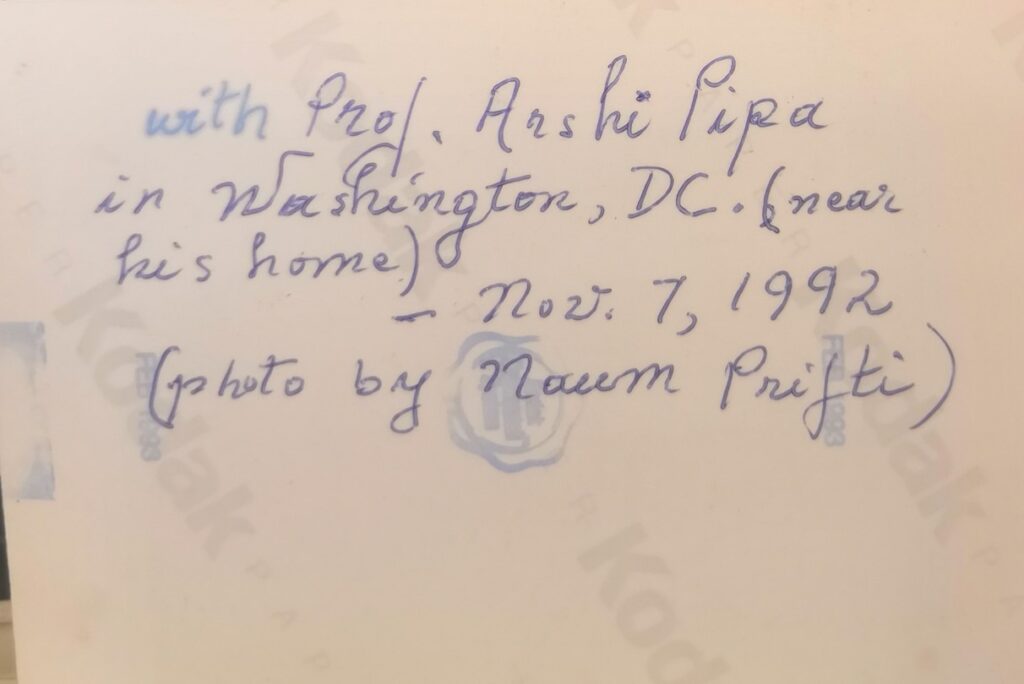 with Prof. Arshi Pipa
in Washington, DC. (near
his home)
– Nov. 7, 1992
(photo by Naum Prifti)
Kodak
Kodak
Kodak
Kodak
FEB 1993